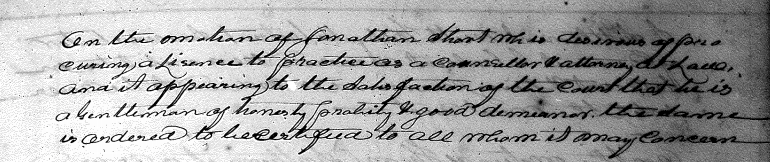 On the motion of Jonathan Short who is desirous of pro
curing a Lisence to practice as a Counsellor & attorney at Law,
and it appearing to the Satisfaction of the Court that he is
a Gentleman of honesty probity & good demeanor. the Same
is ordered to be certified to all whom it may Concern